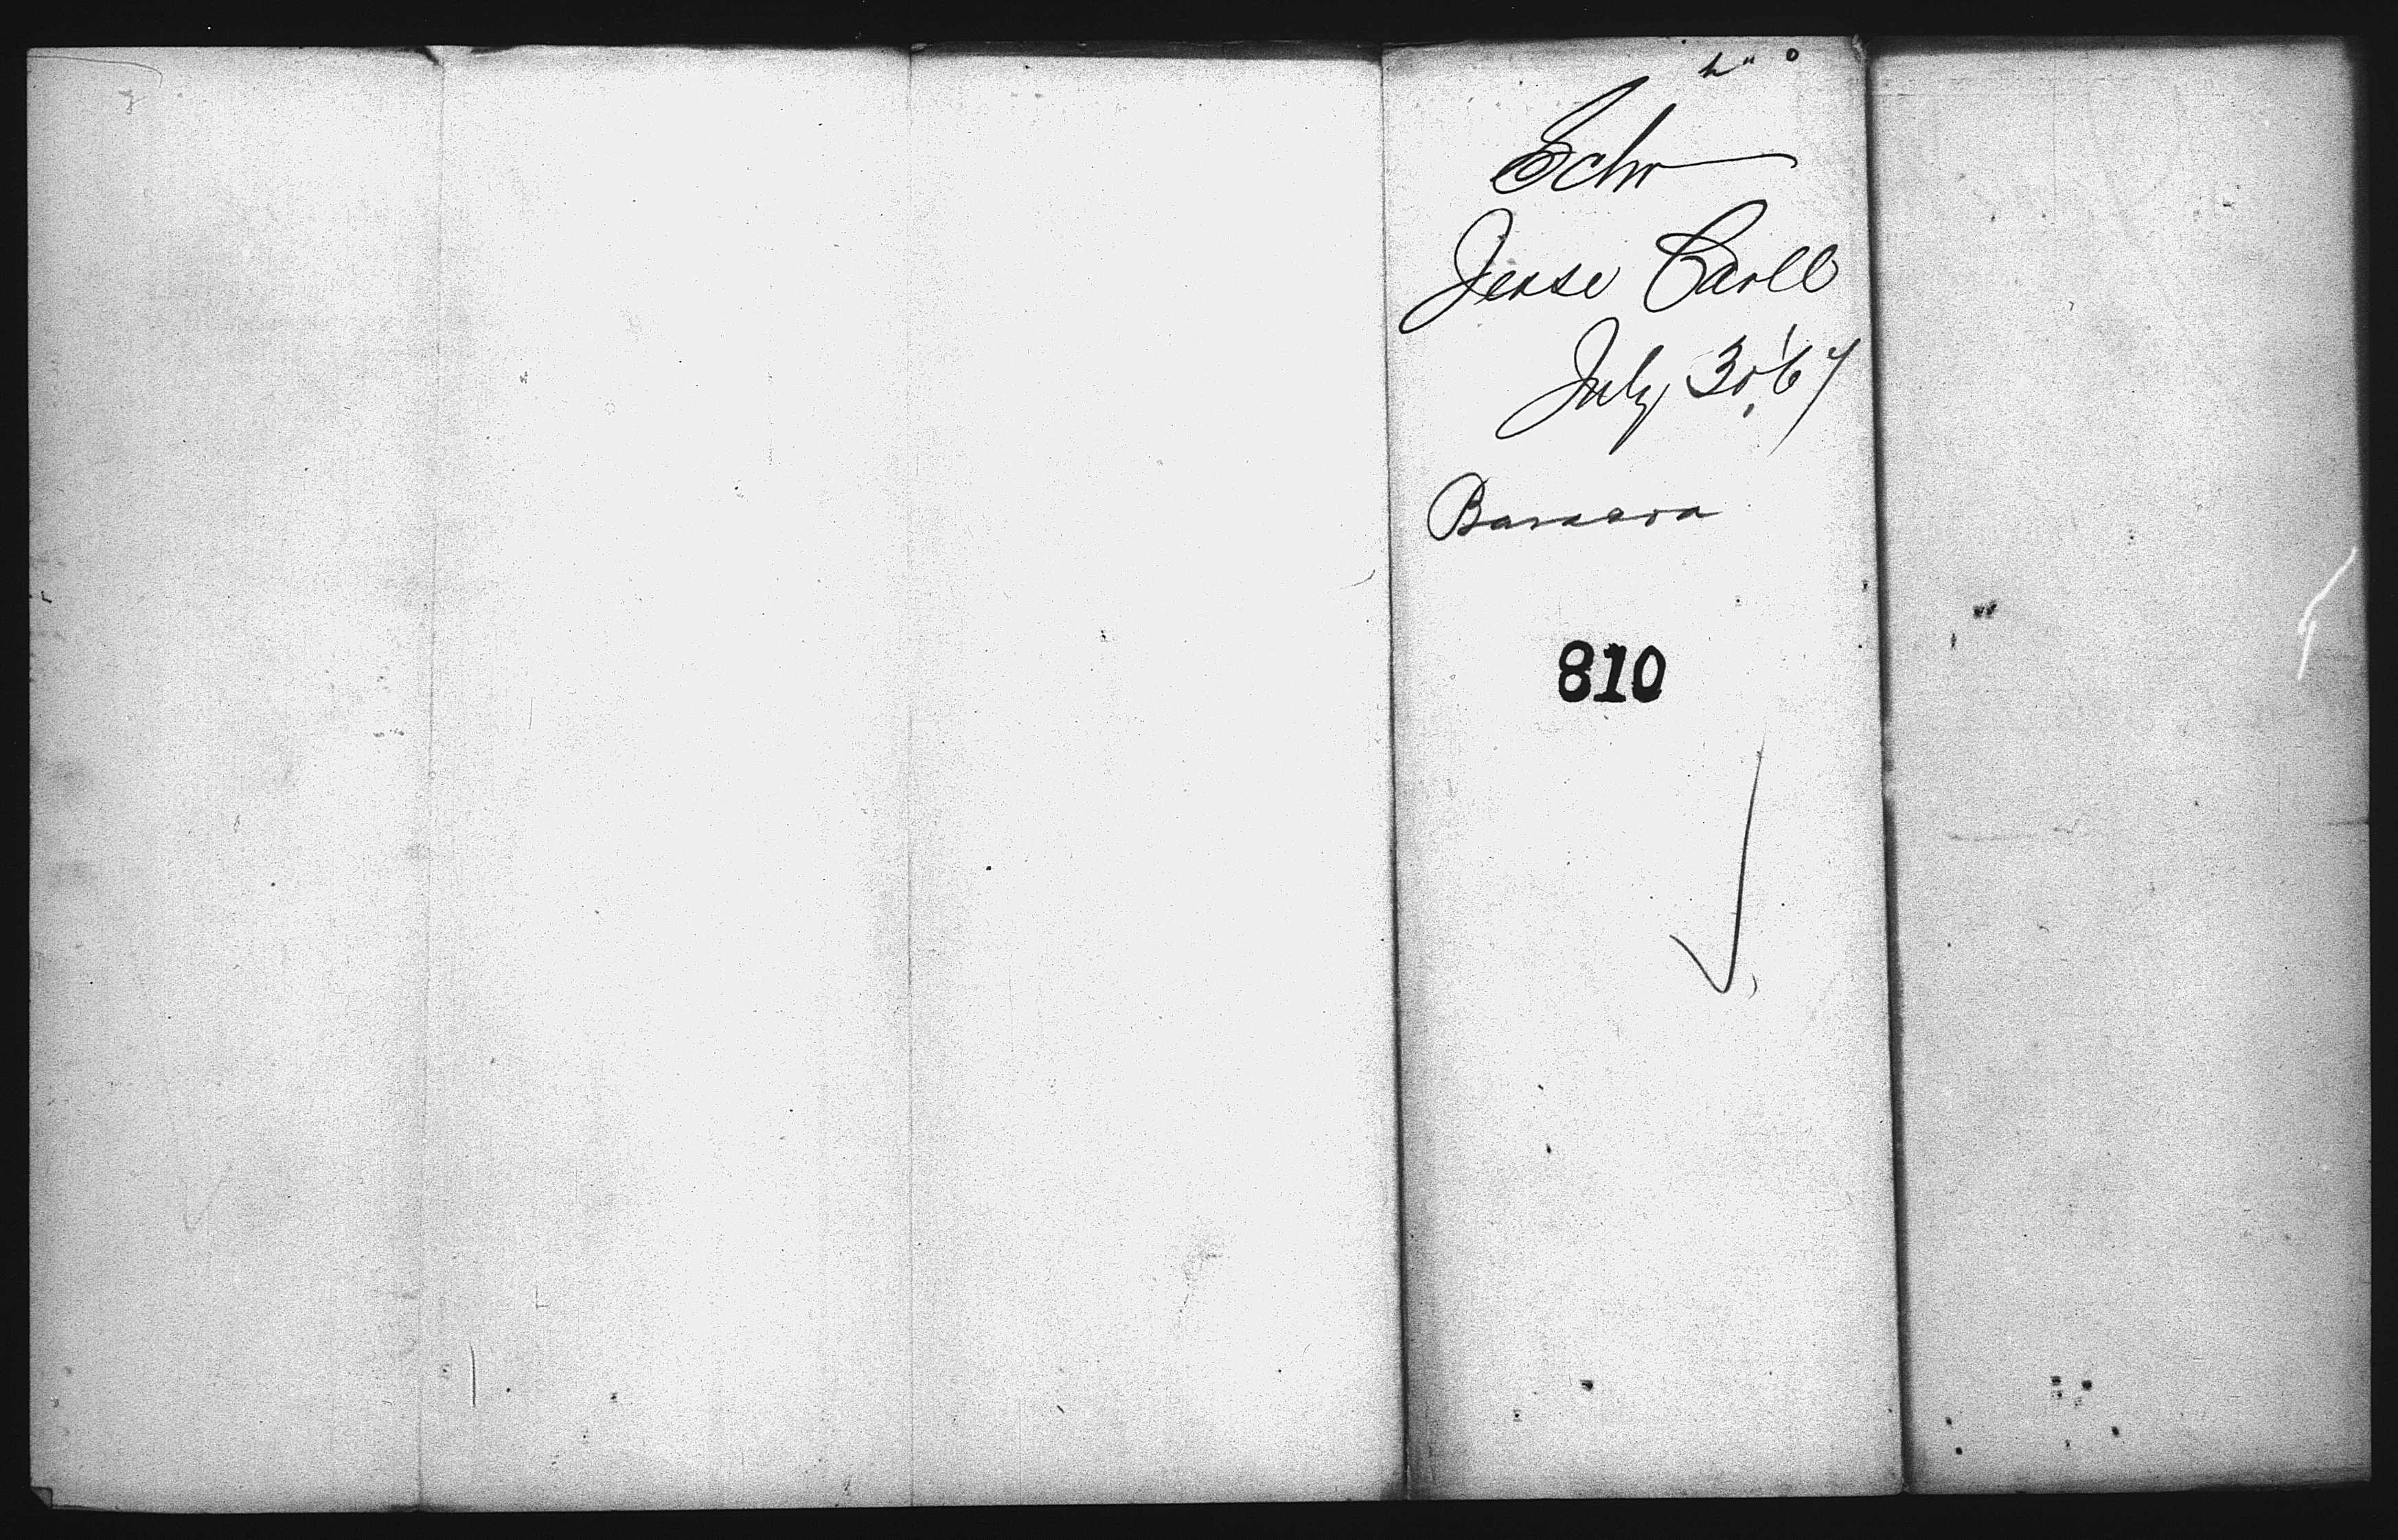 Schr
Jesse Carll
July 30, '67
Banana
810